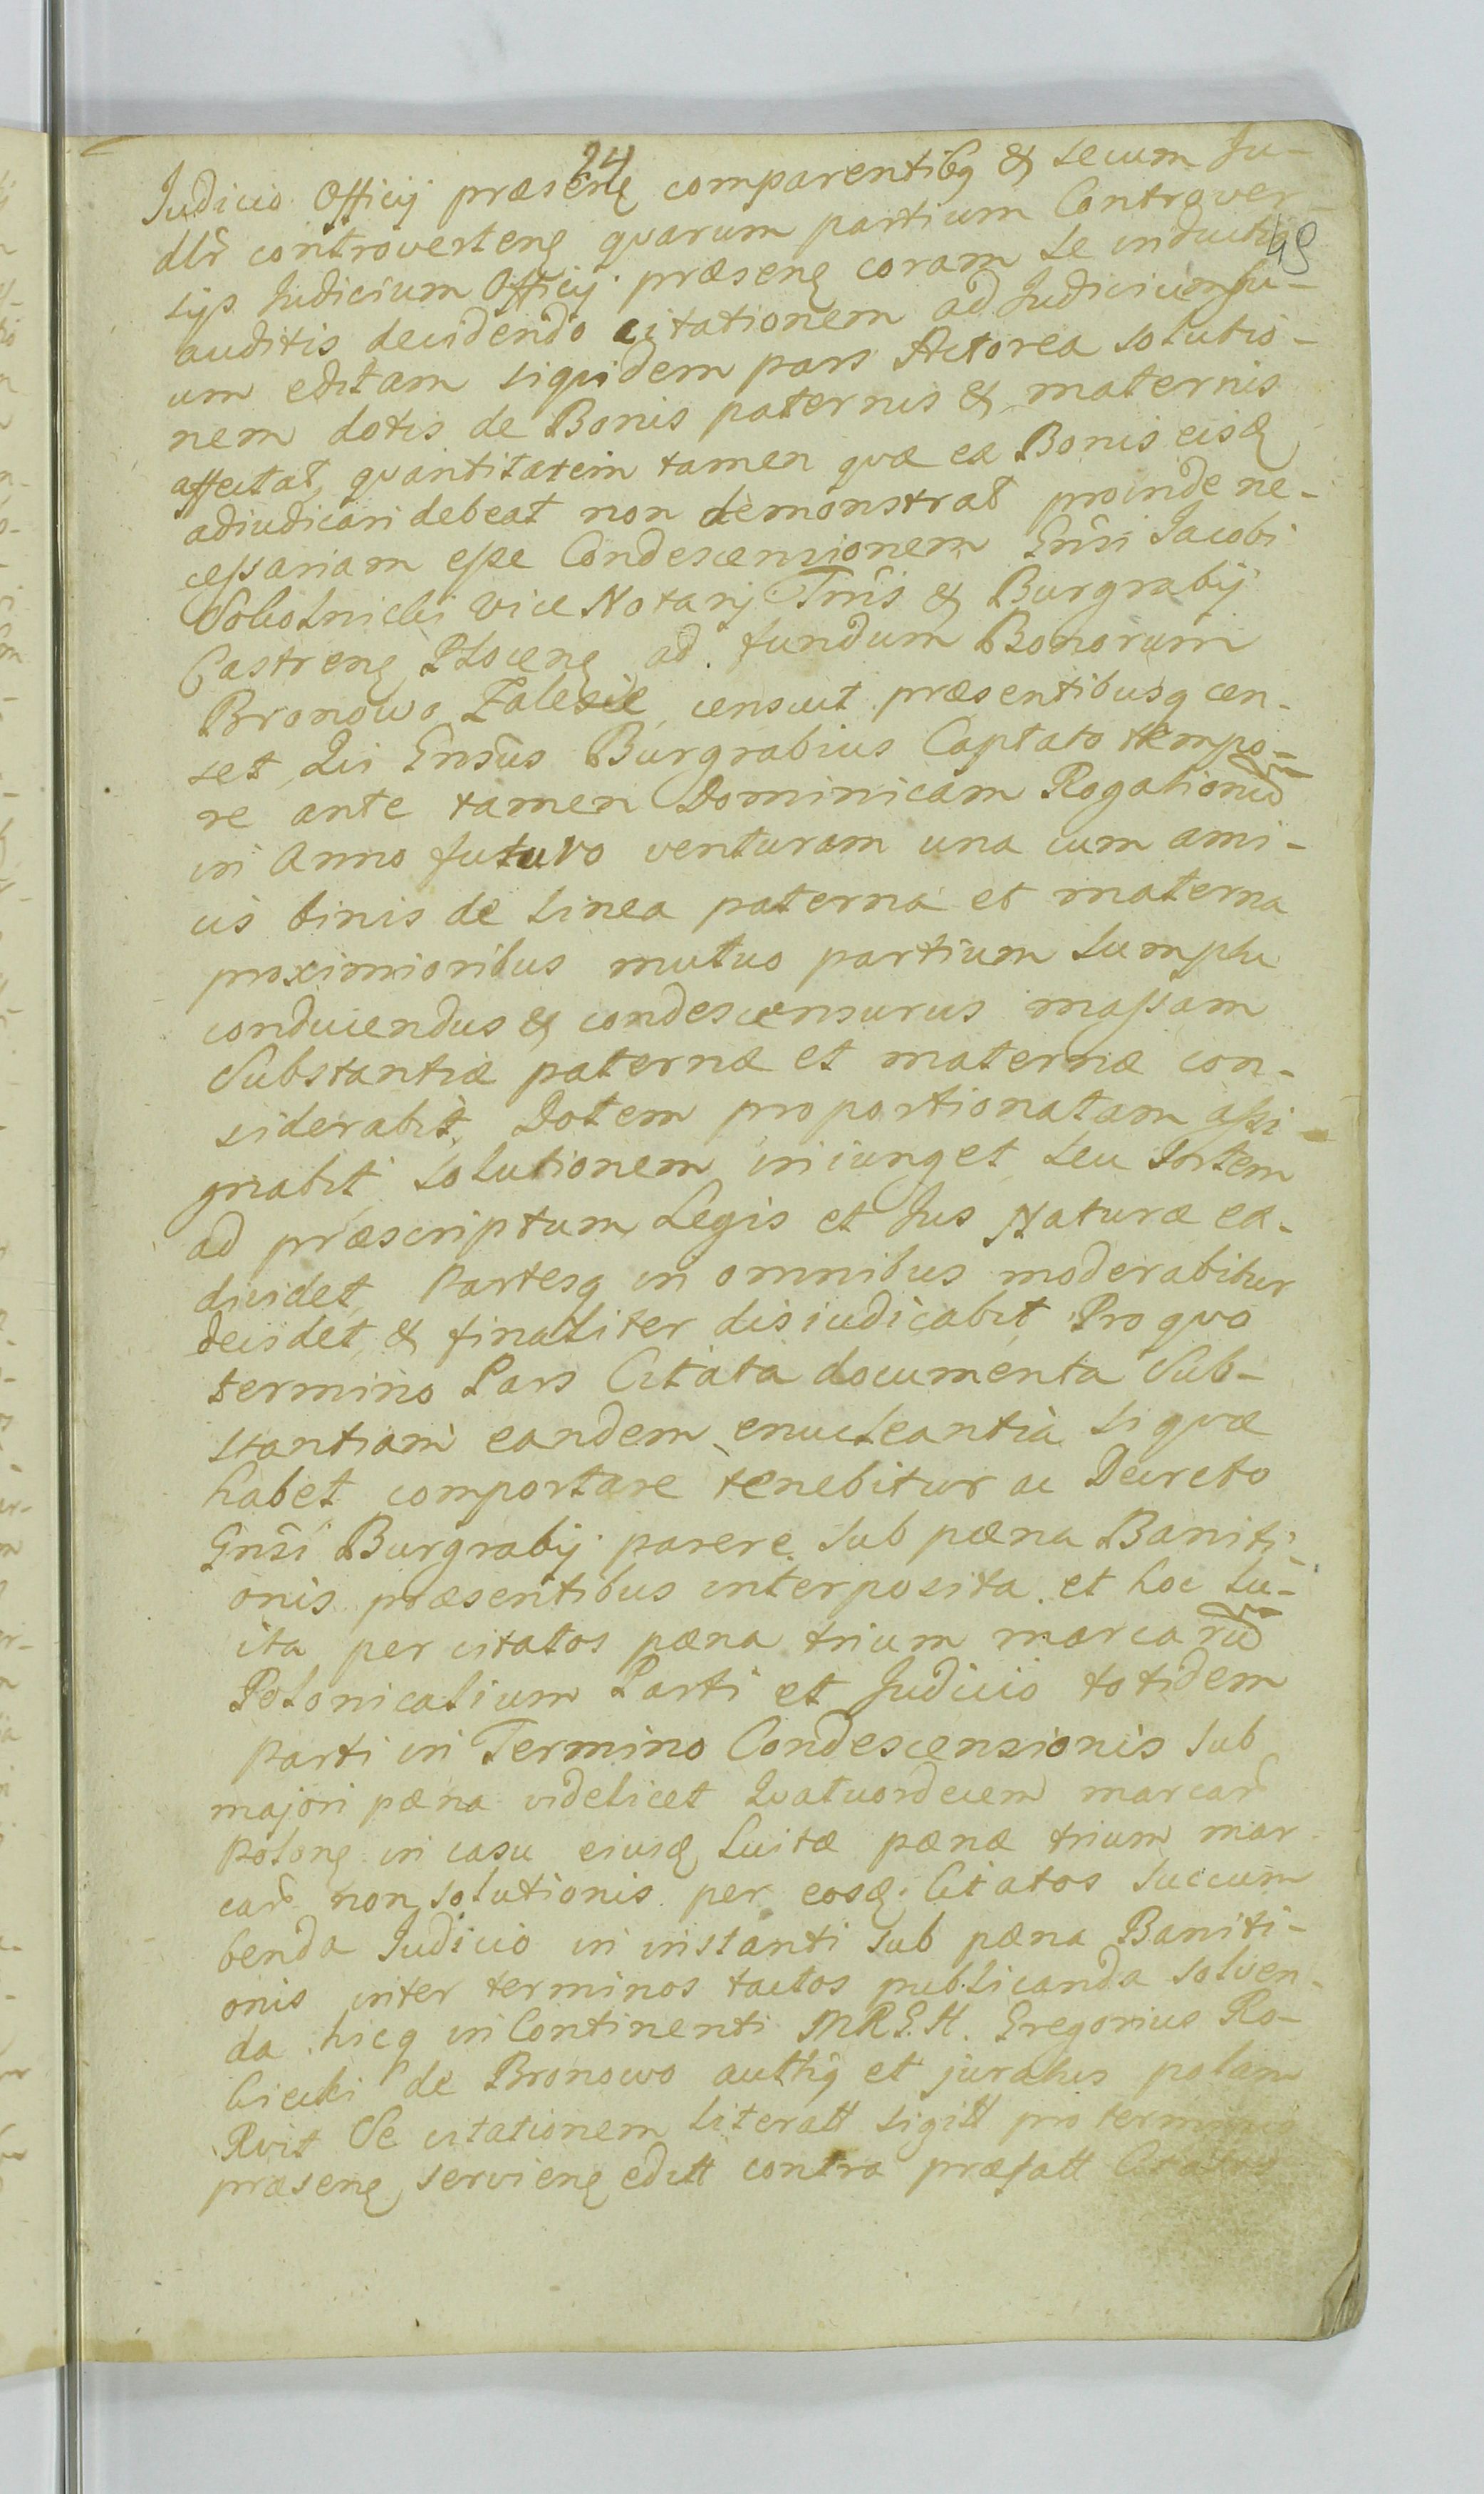 24
49
Iudicio Officij præsenꝭ comparentibꝗ & secum Iu-
dlr controverteng quarum partium Controver-
sijs Iudicium Officij præseng coram se inductis
auditis decidendo citationem ad Iudicium su-
um editam siquidem pars Actorea solutio-
nem dotis de Bonis paternis & maternis
affectat, quantitatem tamen quæ ex Bonis eisd
adiudicari debeat non demonstrat proinde ne-
cessariam esse Condescensionem Gnsi Iacobi
Sokolnicki Vice Notarij Trris & Burgrabij
Castreng Ploceng ad fundum Bonorum
Bronowo Zalesie censuit præsentibusq cen-
set, Qui Gnsus Burgrabius Captato tempo-
re ante tamen Dominicam Rogationũ
in Anno futuro venturam una cum ami-
cis binis de linea paterna et materna
proximioribus mutuo partium sumptu
conducendus & condescensurus massam
Substantiæ paternæ et maternæ con-
siderabit, Dotem proportionatam assi-
gnabit solutionem iniunget seu Sortem
ad præscriptum Legis et Jus Naturæ ex-
dividet, Partesq in omnibus moderabitur
decidet, & finaliter disiudicabit, Pro quo
termino Pars Citata documenta Sub-
stantiam eandem enucleantia si quæ
habet comportare tenebitur ac Decreto
Gnsi Burgrabij parere sub pæna Baniti-
onis præsentibus interposita. et hoc lu-
ita per citatos pæna trium marcarũ
Polonicalium Parti et Judicio totidem
parti in Termino Condescensionis sub
majori pæna videlicet Quatuordecem marcar
Polong in casu eiusd Luitæ pænæ trium mar-
car non solutionis per eosd Citatos succum
benda Iudicio in instanti sub pæna Baniti-
onis inter terminos tactos publicanda solven-
da hicq in Continenti MRGH. Gregorius Ro-
ciecki de Bronowo autthg et juratus palam
Rvit Se citationem literatt sigitt pro termino
præseng servieng editt contra præfatt Citatos